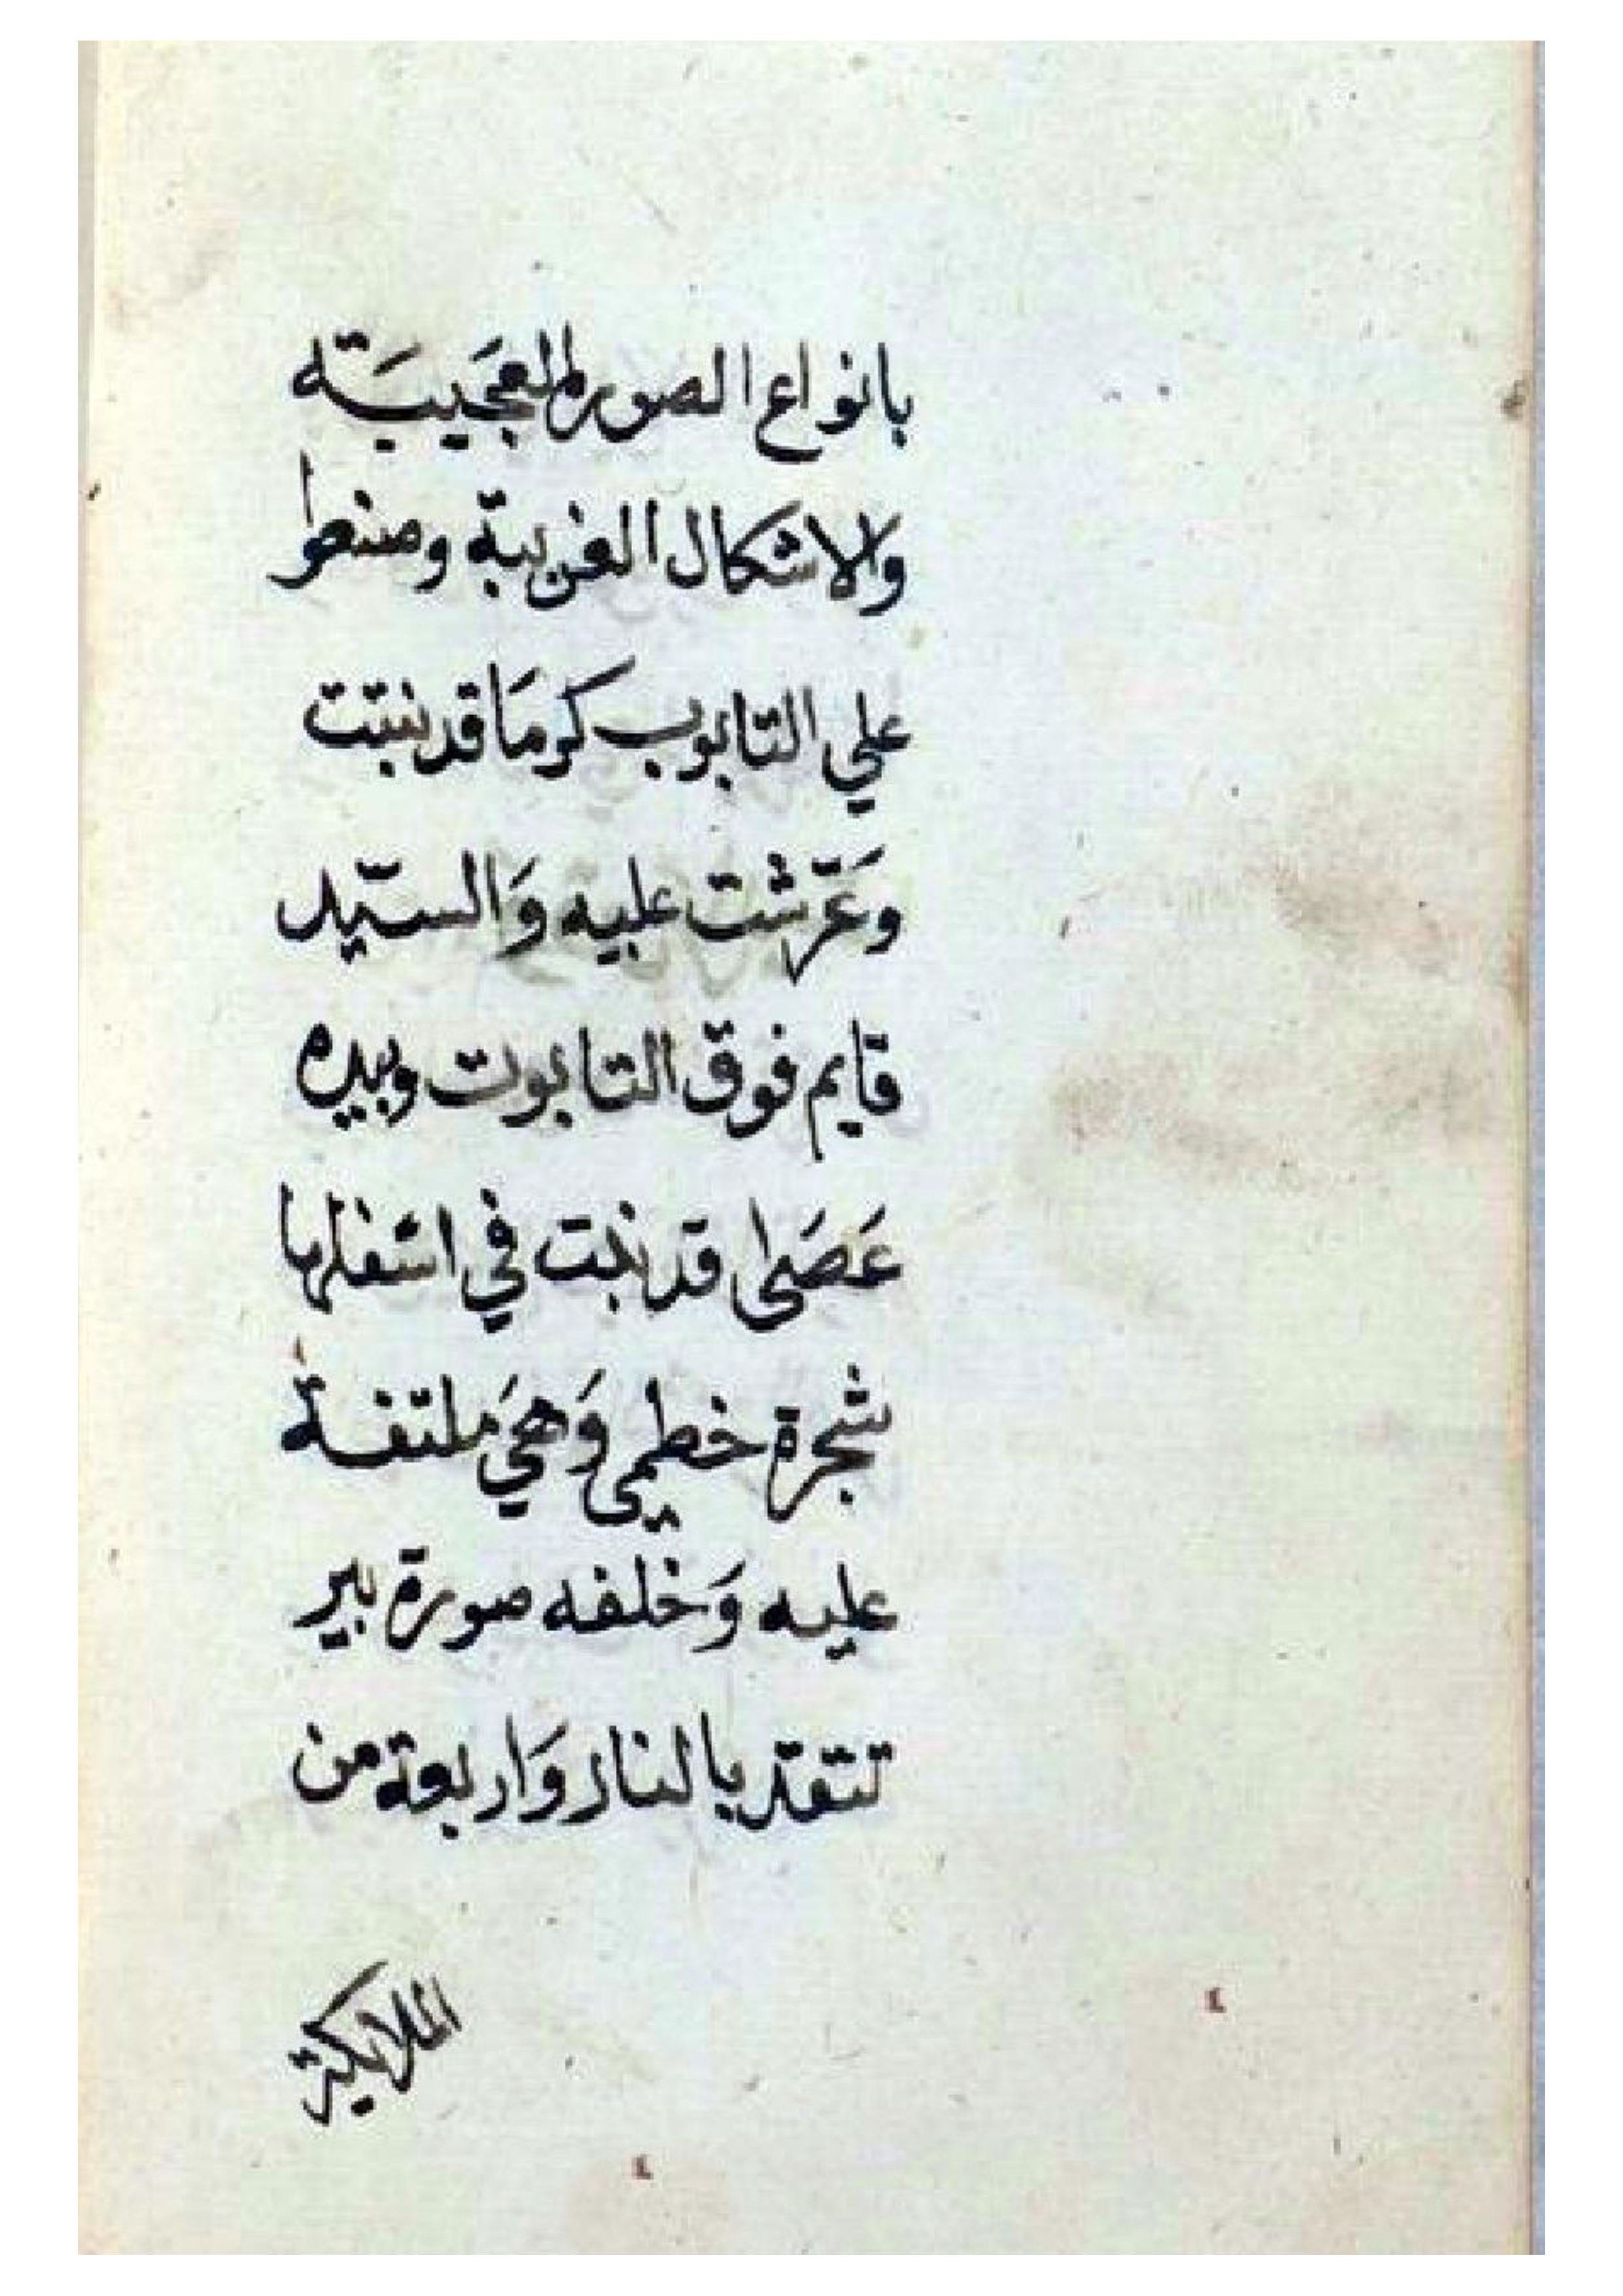 بانواع الصور العَجَيبَة
والاشكال الغريبة ومنظرا
علي التابوب كرمَا قد نبتت
وَعَرّشت عليه وَالسيّد
قايم فوق التابوت وبيده
عَصَى قد نبتت في اسفلها
شجرة خطمي وَهيَ ملتفة
عليه وَخلفه صورة بير
تتقد بالنار وَاربعة من
الملايكة